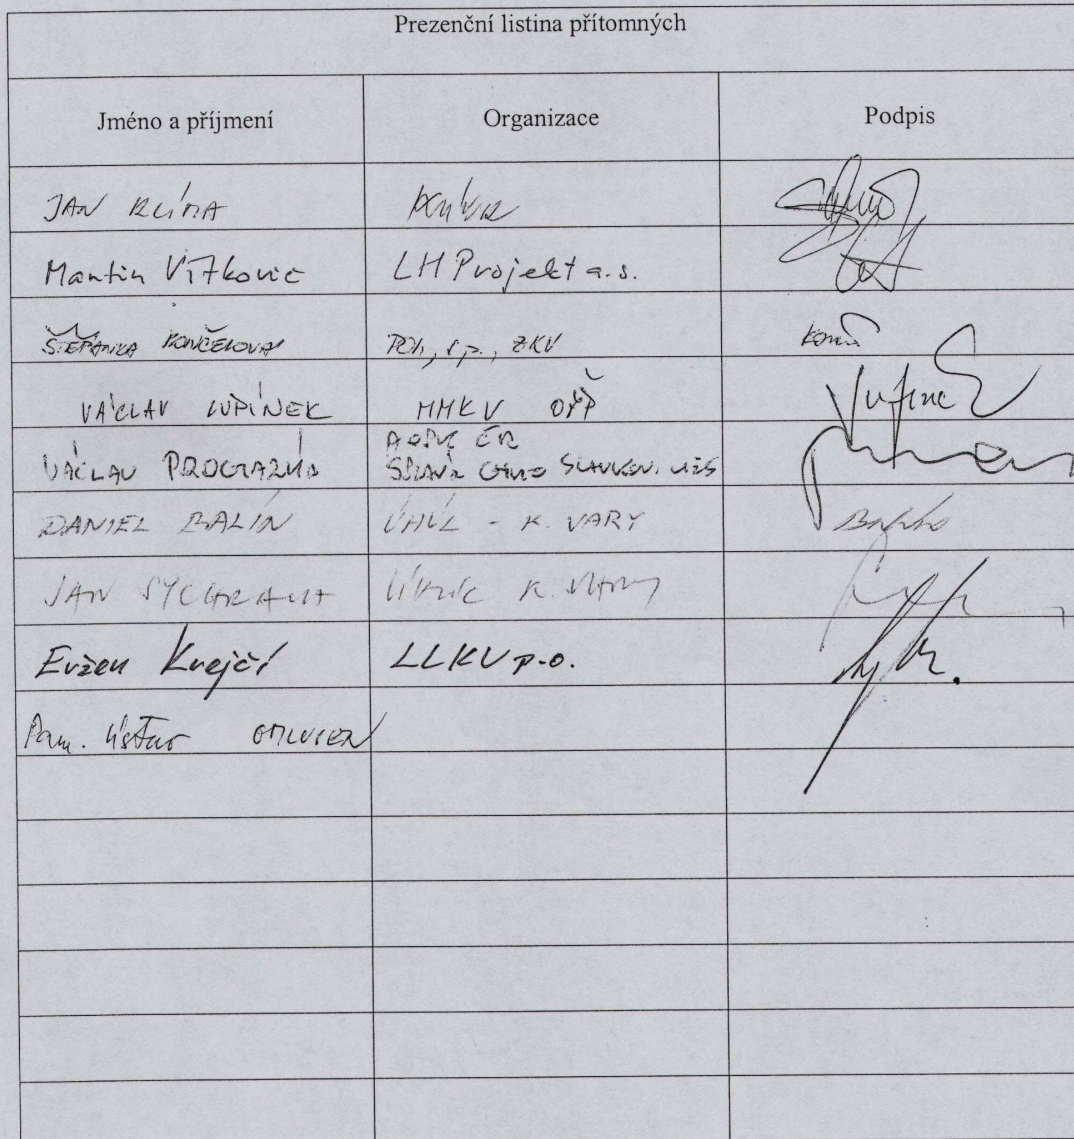 Prezenční listina přítomných
Jméno a příjmení Organizace Podpis
JAN KLÍMA
Martin Vítkovic LH Projekt a.s.
ŠTĚPÁNKA KONČELOVÁ ZKV
VÁCLAV LUPÍNEK MMKV OŽP
VÁCLAV PROCHÁZKA AOPK ČR
SPRÁVA CHKO SLAVKOV. LES
DANIEL BALÍN ÚHÚL - K. VARY
JAN SYCHRAVA K. VARY
Evžen Krejčí LLKV p.o.
Pam. ústav OMLUVEN